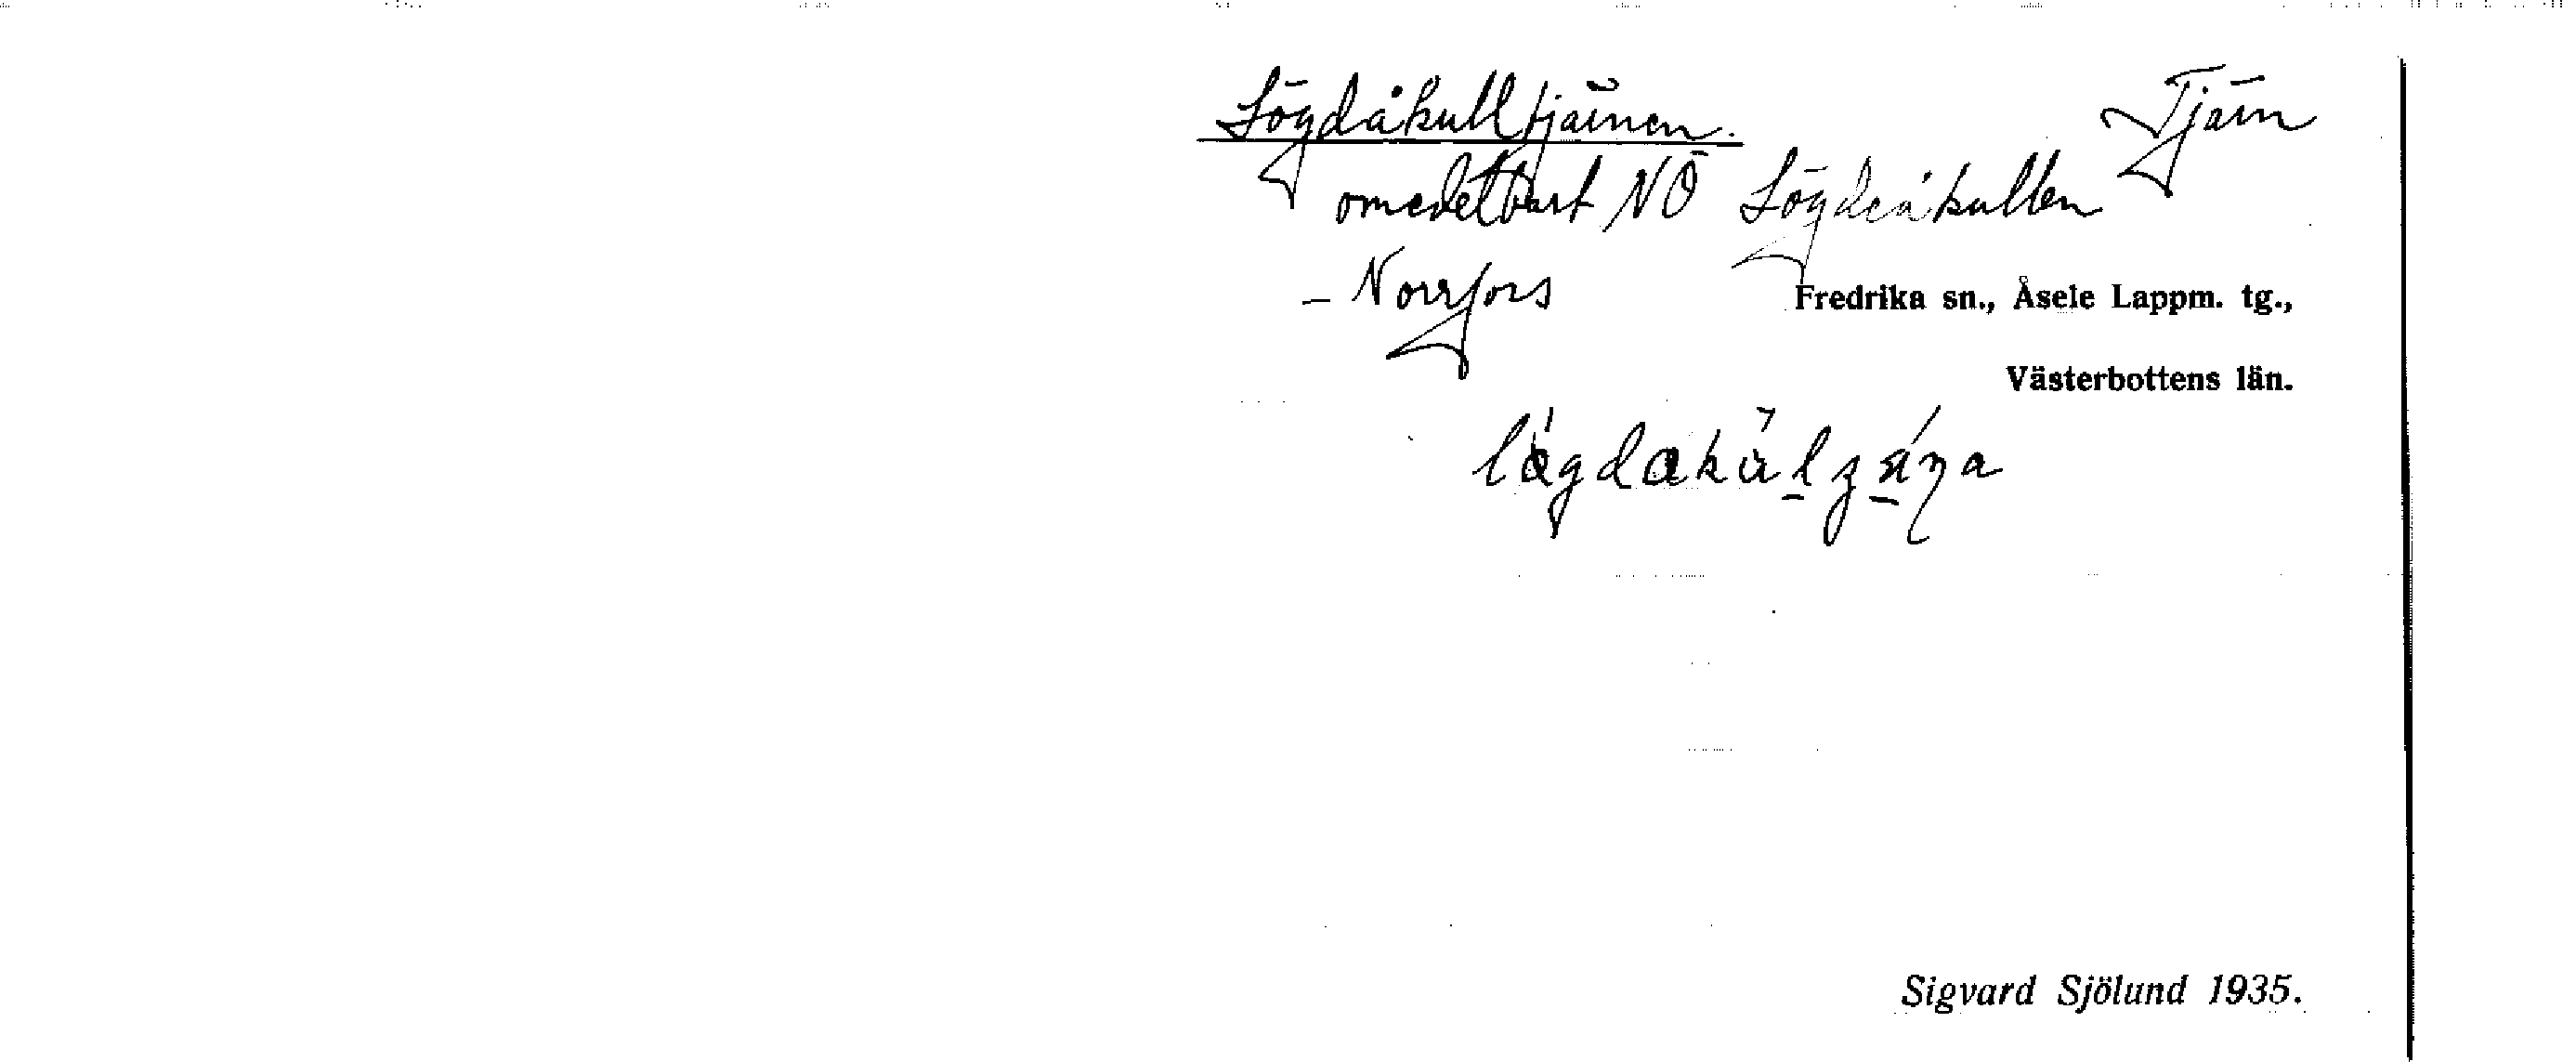 Lögdåkulltjärnen. Tjärn
omedelbart NÖ Lögdeåkullen
- Norrfors
Fredrika sn., Åsele Lappm. tg.,
Västerbottens län.
Sigvard Sjölund 1935.